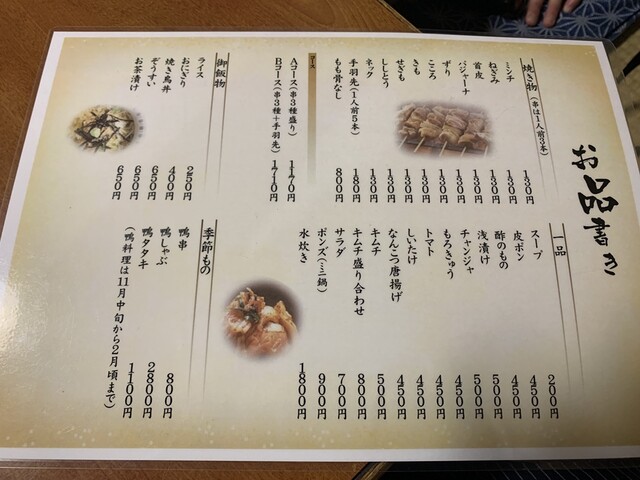 お品書き
焼き物(串は1人前3本)
ミンチ 130円
ねぎみ 130円
首皮 130円
バジャーナ 130円
ずり 130円
こころ 130円
きも 130円
せぎも 130円
ししとう 130円
ネック 130円
手羽先(1人前5本) 180円
もも骨なし 800円
コース
Aコース(串3種盛り) 1170円
Bコース(串3種+手羽先) 1710円
御飯物
ライス 250円
おにぎり 400円
焼き鳥丼 650円
ぞうすい 650円
お茶漬け 650円
一品
スープ 200円
皮ポン 450円
酢のもの 450円
浅漬け 500円
チャンジャ 500円
もろきゅう 450円
トマト 450円
しいたけ 450円
なんこつ唐揚げ 450円
キムチ 500円
キムチ盛り合わせ 800円
サラダ 700円
ポンズ(ミニ鍋) 900円
水炊き 1800円
季節もの
鴨串 800円
鴨しゃぶ 2800円
鴨タタキ 1100円
(鴨料理は11月中旬から2月頃まで)